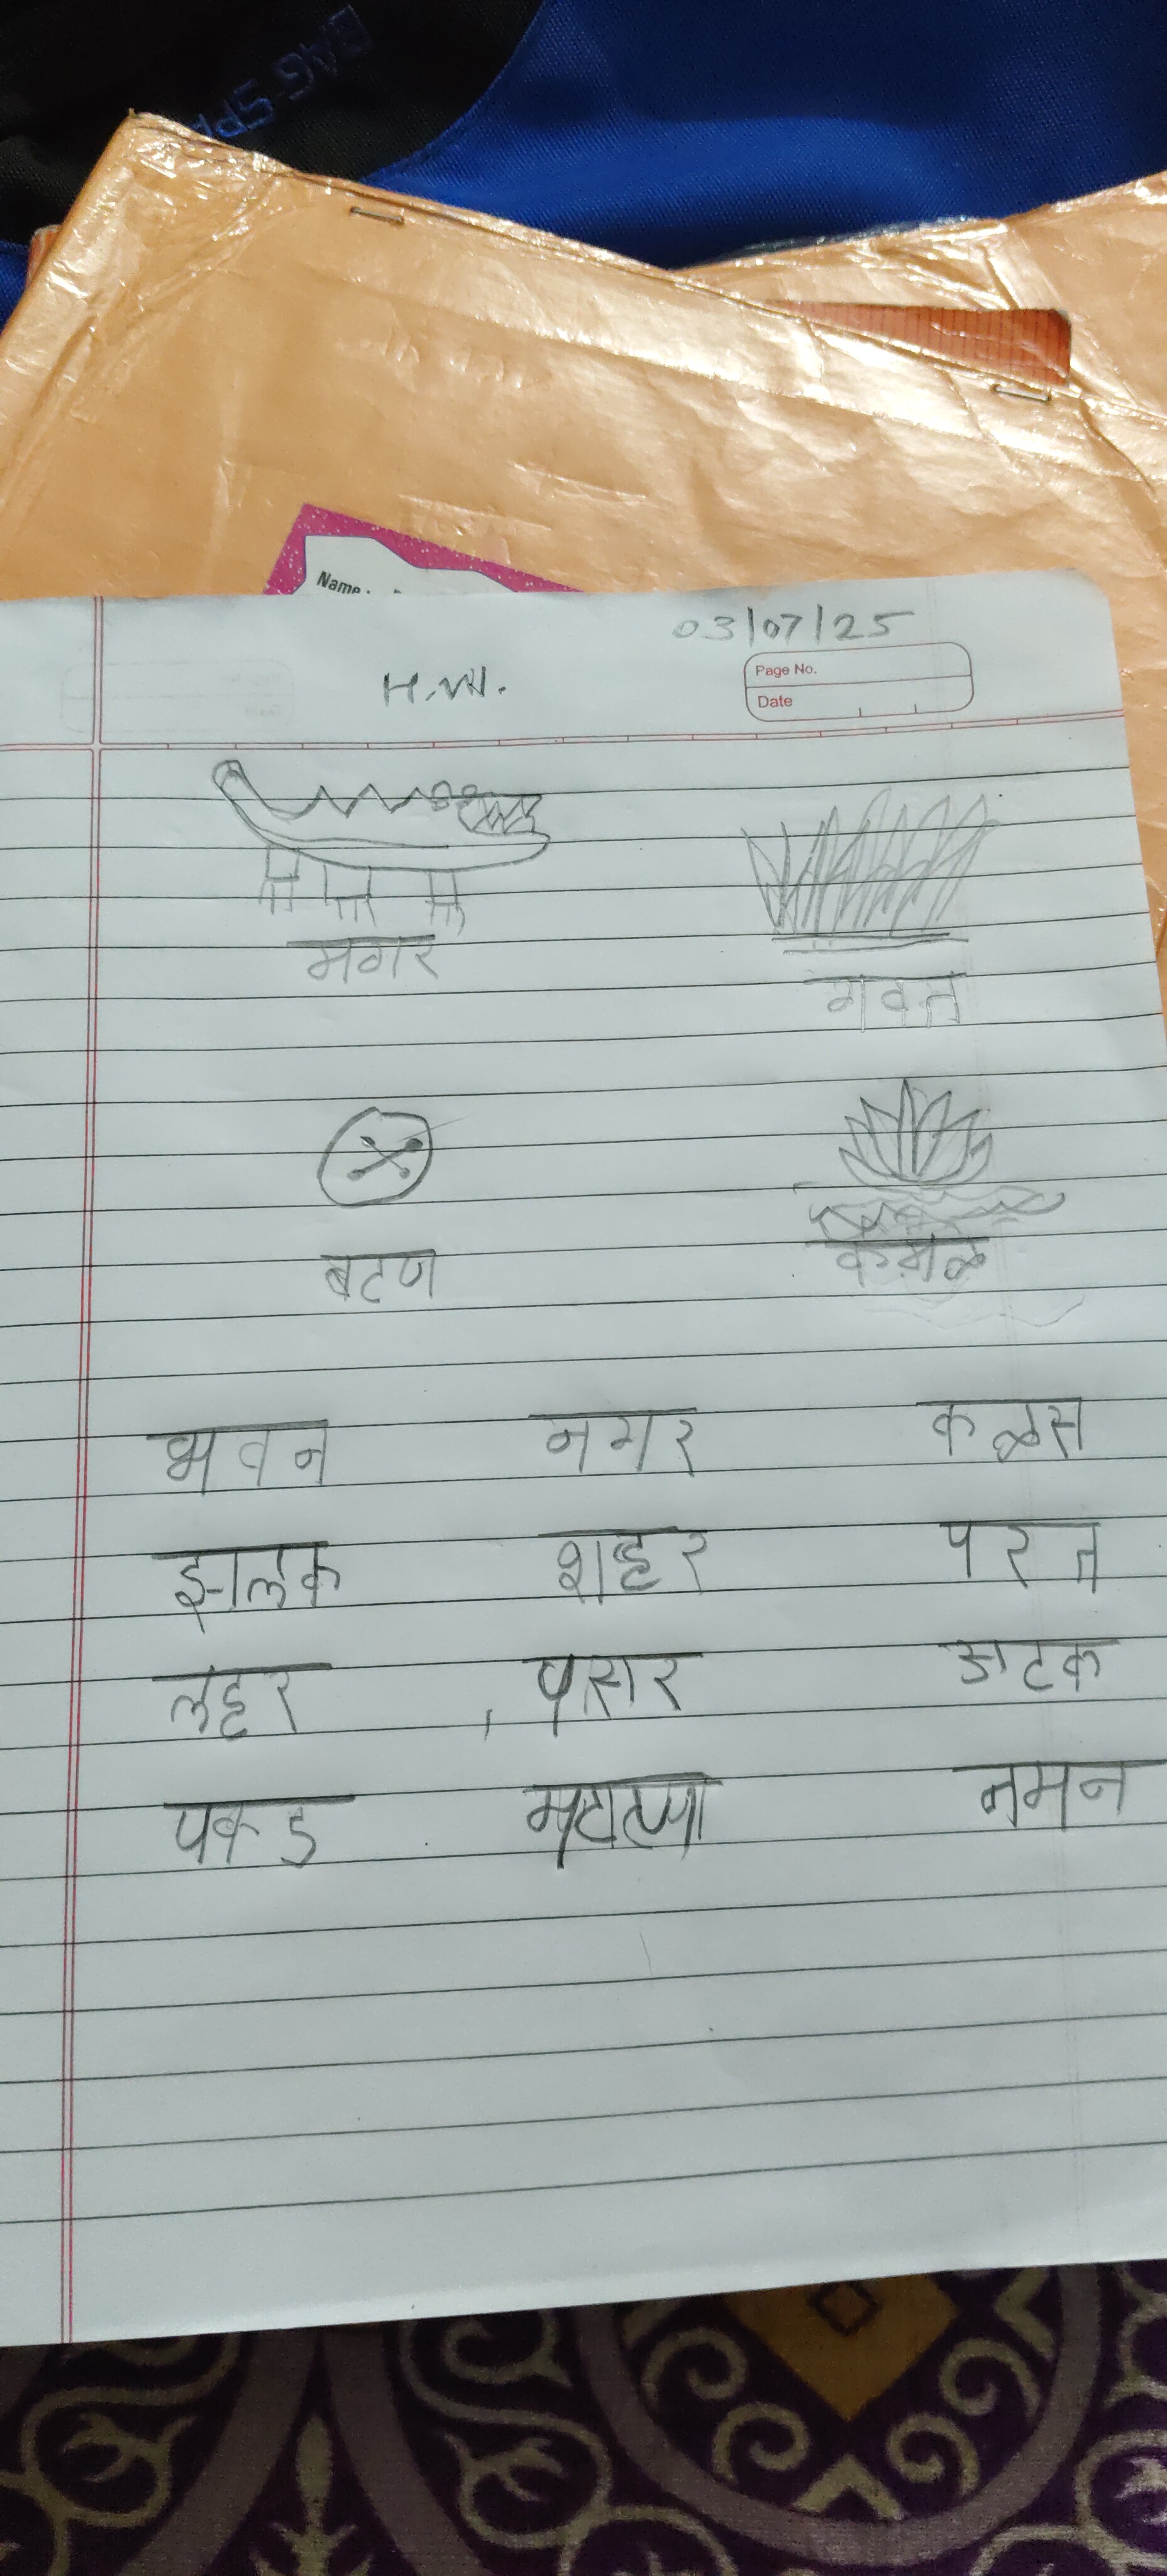 BAG SPA
Name
03/07/25
H.W.
Page No.
Date
मगर
गवत
बटण
कमळ
भवन नगर कळस
झलक शहर परत
लहर , पसर अटक
पकड नमन